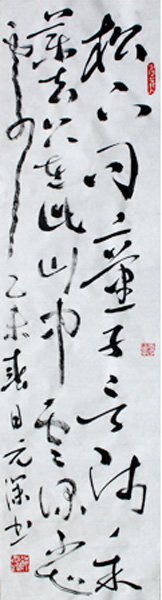 松下問童子言師采
藥去只在此山中雲深不
知處 乙未春日元深书